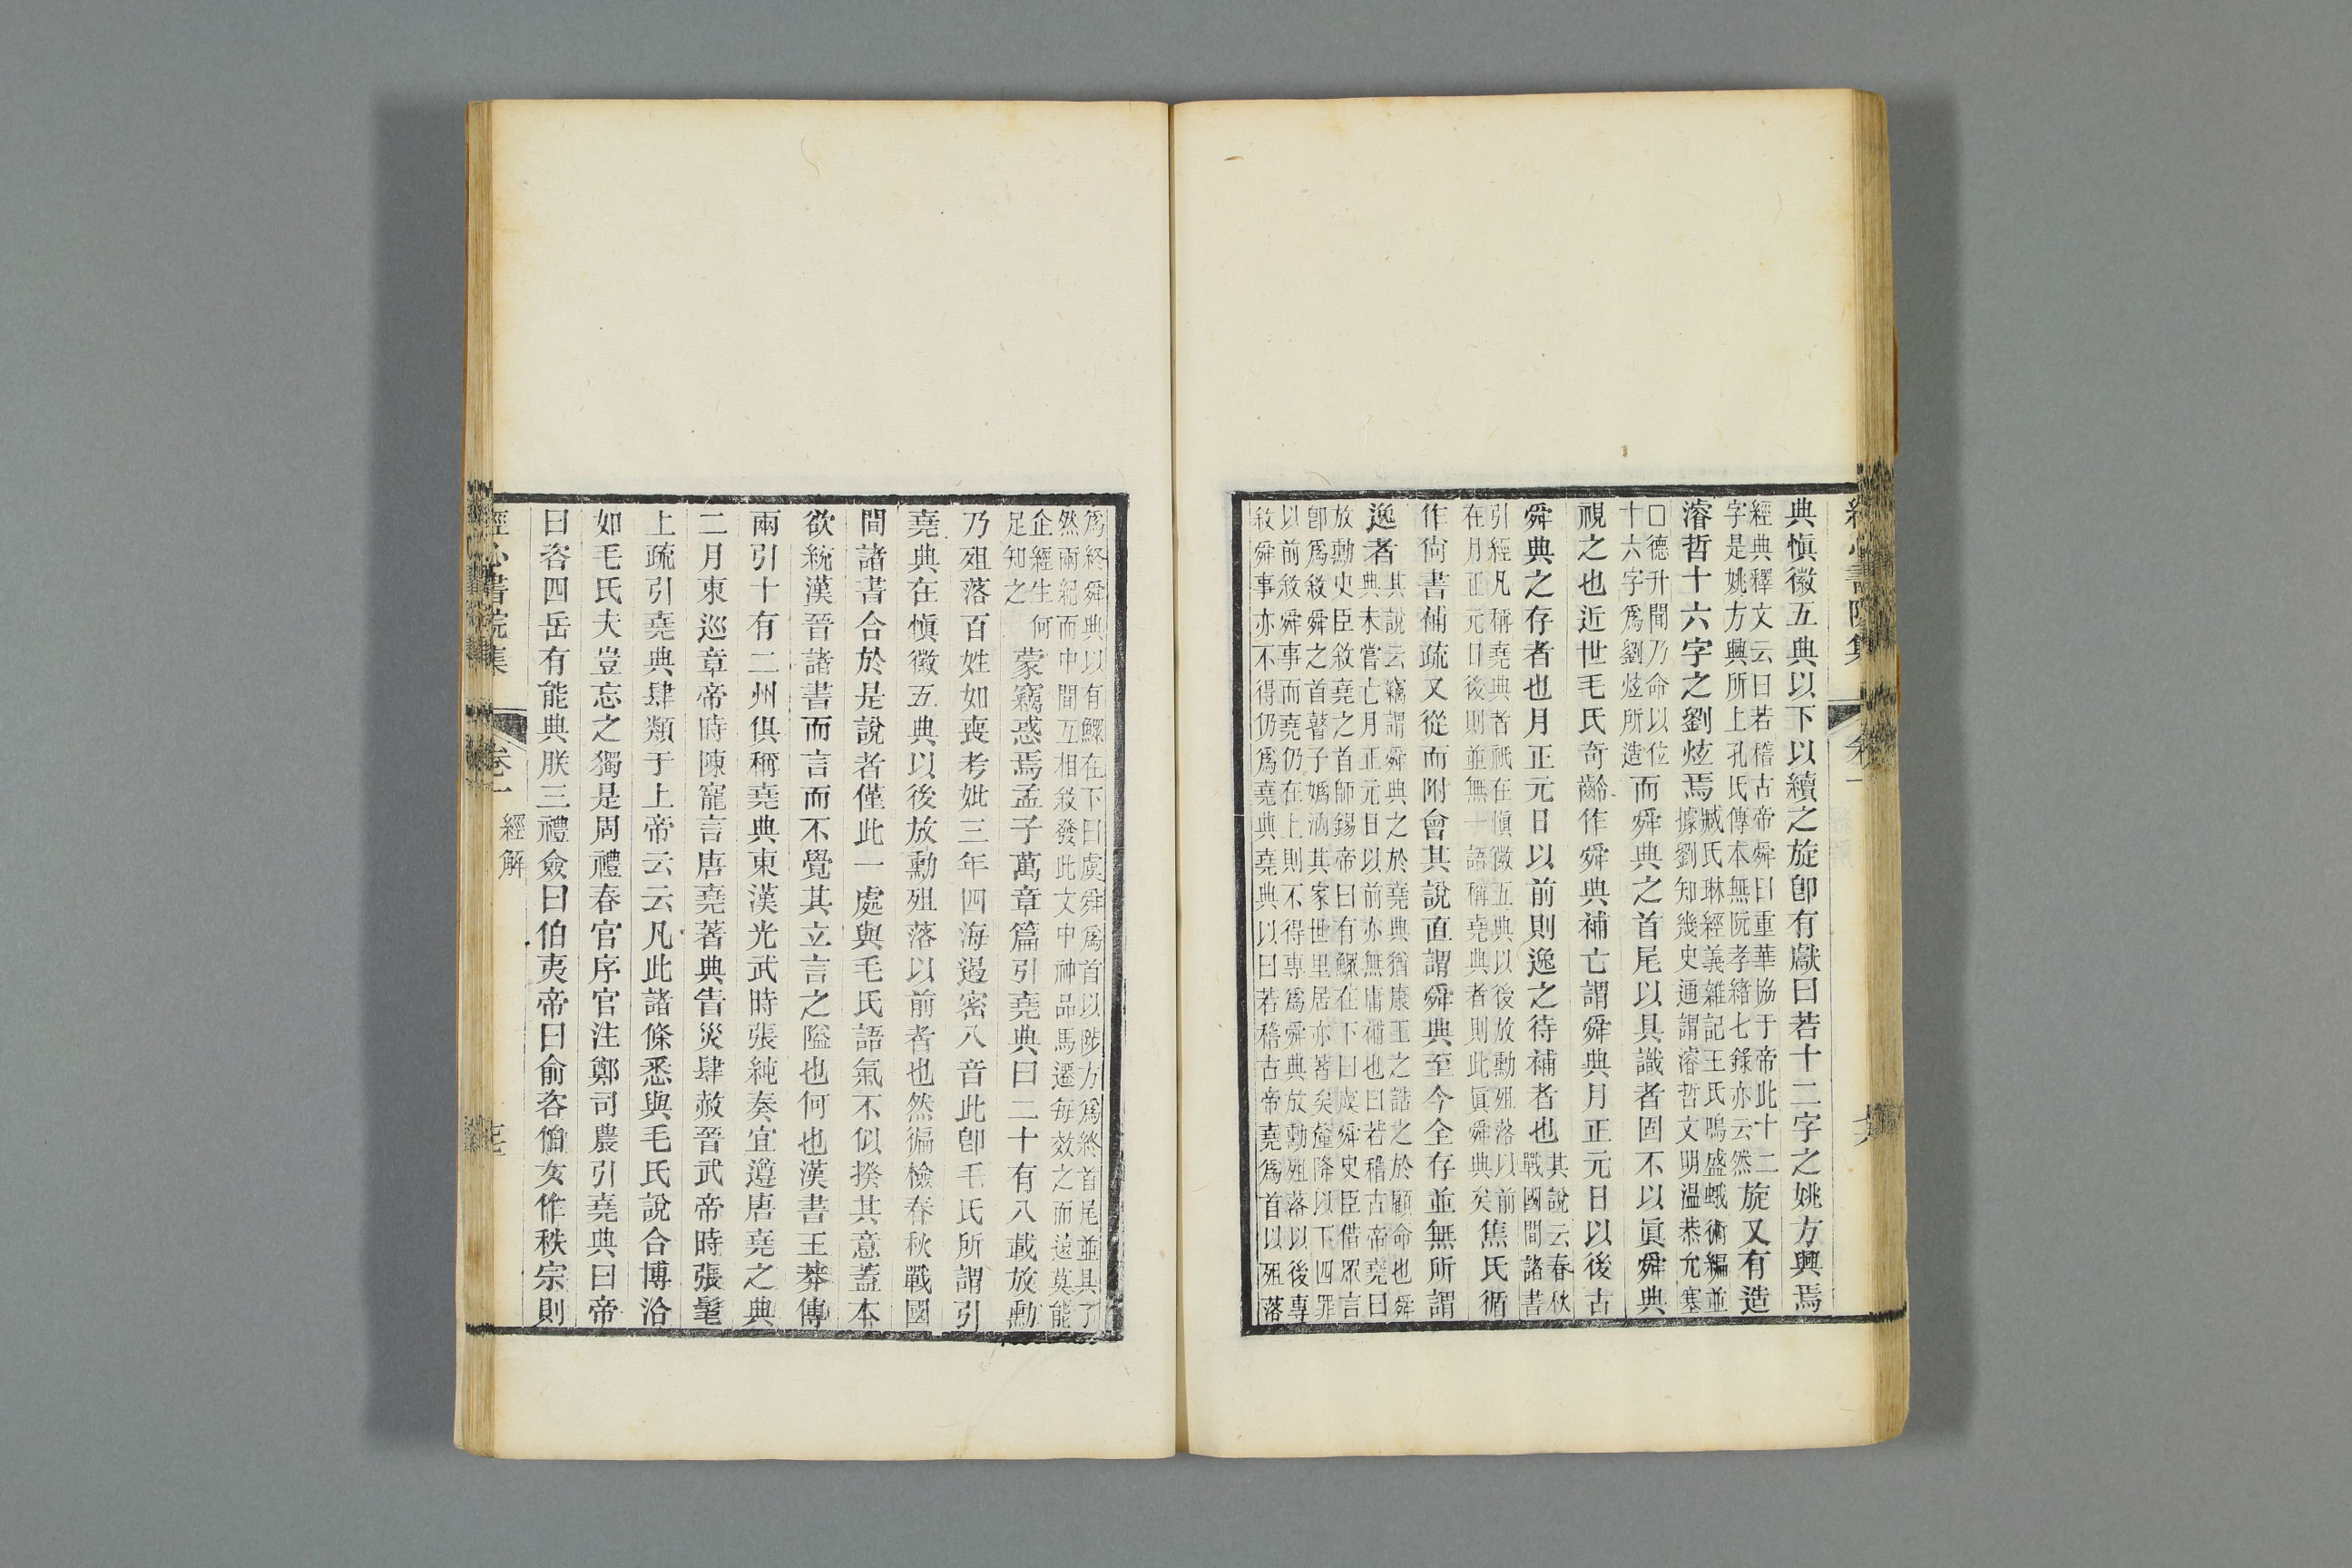 典愼徽五典以下以續之旋卽有獻曰若十二字之姚方興焉
經典釋文云曰若稽古帝舜曰重華協于帝此十二
字是姚方興所上孔氏傳本無阮孝緒七錄亦云然
旋又有造
濬哲十六字之劉炫焉
臧氏琳經義雜記王氏鳴盛蛾術編並
據劉知幾史通謂濬哲文明溫恭允塞
□德升聞乃命以位
十六字爲劉炫所造
而舜典之首尾以具識者固不以眞舜典
視之也近世毛氏奇齡作舜典補亡謂舜典月正元日以後古
舜典之存者也月正元日以前則逸之待補者也
其說云春秋
戰國間諸書
引經凡稱堯典者祇在愼徽五典以後放勳殂落以前
在月正元日後則並無一語稱堯典者則此眞舜典矣
焦氏循
作尙書補疏又從而附會其說直謂舜典至今全存並無所謂
逸者
其說云竊謂舜典之於堯典猶康王之誥之於顧命也舜
典未嘗亡月正元日以前亦無庸補也曰若稽古帝堯曰
放勳史臣敘堯之首師錫帝曰有鰥在下曰虞舜史臣借眾言
卽爲敘舜之首瞽子嬀汭其家世里居亦著矣釐降以下四罪
以前敘舜事而堯仍在上則不得專爲舜典放勳殂落以後專
敘舜事亦不得仍爲堯典堯典以曰若稽古帝堯爲首以殂落
爲終舜典以有鰥在下曰虞舜爲首以陟方爲終首尾並具了
然兩紀而中間互相敘發此文中神品馬遷每效之而遠莫能
企經生何
足知之
蒙竊惑焉孟子萬章篇引堯典曰二十有八載放勳
乃殂落百姓如喪考妣三年四海遏密八音此卽毛氏所謂引
堯典在愼徽五典以後放勳殂落以前者也然徧檢春秋戰國
間諸書合於是說者僅此一處與毛氏語氣不似揆其意蓋本
欲統漢晉諸書而言而不覺其立言之隘也何也漢書王莽傳
兩引十有二州俱稱堯典東漢光武時張純奏宜遵唐堯之典
二月東巡章帝時陳寵言唐堯著典眚災肆赦晉武帝時張髦
上疏引堯典肆類于上帝云云凡此諸條悉與毛氏說合博洽
如毛氏夫豈忘之獨是周禮春官序官注鄭司農引堯典曰帝
曰咨四岳有能典朕三禮僉曰伯夷帝曰俞咨伯女作秩宗則
經心書院集
卷一
經解